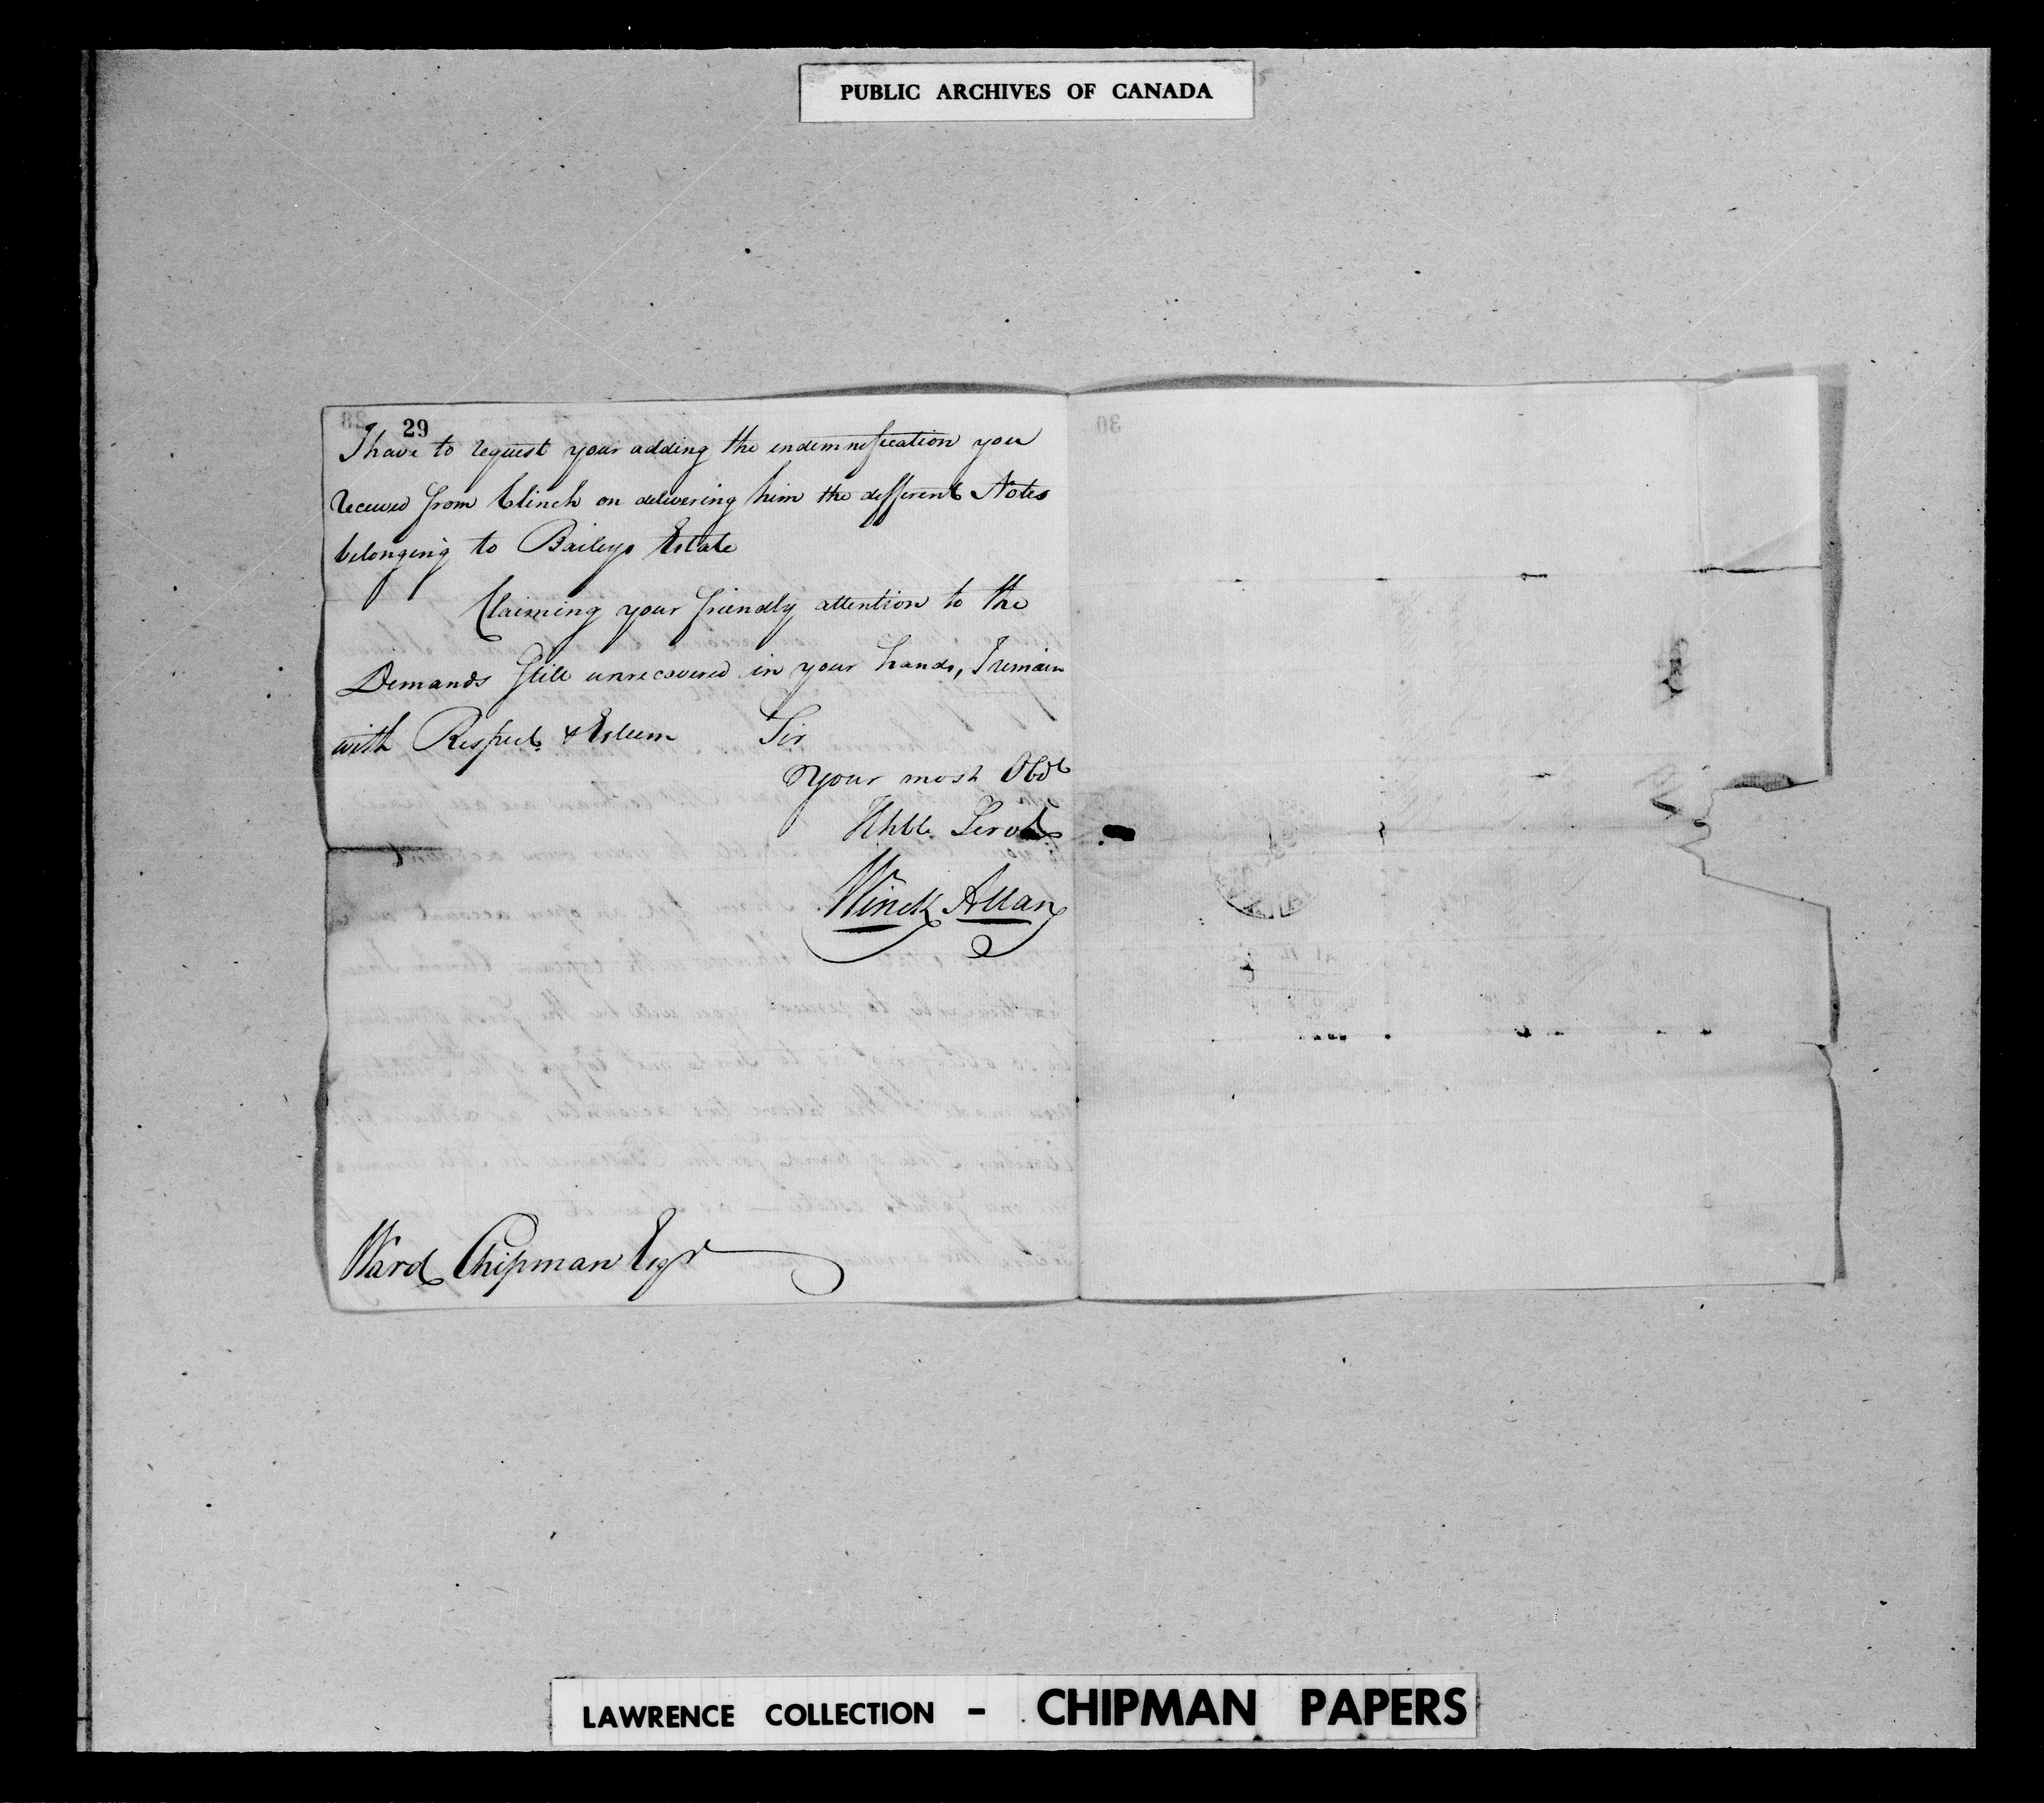 PUBLIC ARCHIVES OF CANADA
29
I have to request your adding the endemnification you
received from Clinch on delivering him the different Notes
belonging to Baileys Estate
Claiming your friendly attention to the
Demands still unrecovered in your hands, I remain
with Respect & Esteem Sir
Your most Obdt
Hble Servt
Winck Allan
Ward Chipman Esqr
LAWRENCE COLLECTION - CHIPMAN PAPERS